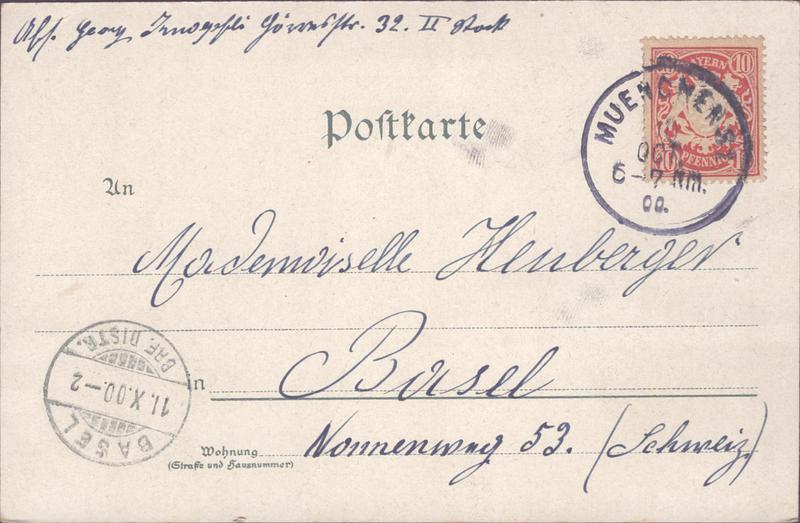 Abs. Georg Görresstr. 32. II Stock
BAYERN 10
PFENNIG
MUENCHEN
OCT
6-7 NM.
00.
Postkarte
An
Mademoiselle Heuberger
in Basel
Wohnung Nonnenweg 53. (Schweiz)
(Straße und Hausnummer)
BASEL
11.X.00.-2
BRF. DISTR.